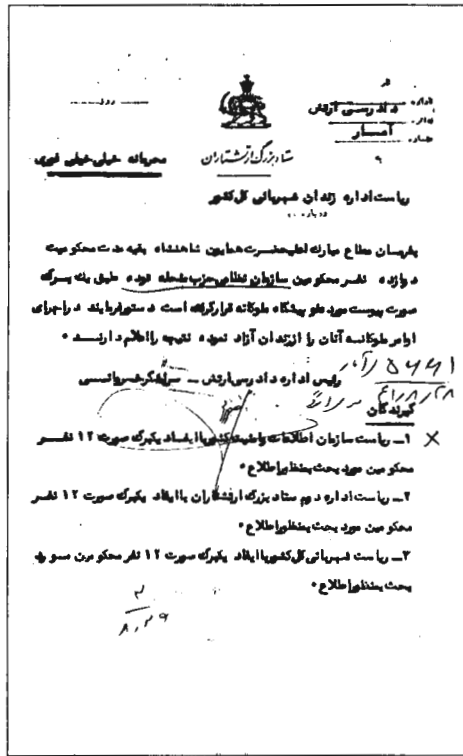 اداره دادرسی ارتش
ستاد بزرگ ارتشتاران
محرمانه خیلی خیلی فوری
ریاست اداره زندان شهربانی کل کشور
درباره
بفرمان مطاع مبارک اعلیحضرت همایون شاهنشاه بقیه مدت محکومیت
دوازده نفر محکومین سازمان نظامی حزب منحله توده طبق یک برگ
صورت پیوست مورد عفو پیشگاه ملوکانه قرار گرفته است دستور فرمایند در اجرای
اوامر ملوکانه آنان را از زندان آزاد نموده نتیجه را اعلام دارند ۰
رئیس اداره دادرسی ارتش ــ سرلشگر خسروانی
گیرندگان
۱ــ ریاست سازمان اطلاعات و امنیت کشور با ایفاد یکبرگ صورت ۱۲ نفر
محکومین مورد بحث بمنظور اطلاع ۰
۲ــ ریاست اداره دوم ستاد بزرگ ارتشتاران با ایفاد یکبرگ صورت ۱۲ نفر
محکومین مورد بحث بمنظور اطلاع ۰
۳ــ ریاست شهربانی کل کشور با ایفاد یکبرگ صورت ۱۲ نفر محکومین مورد
بحث بمنظور اطلاع ۰